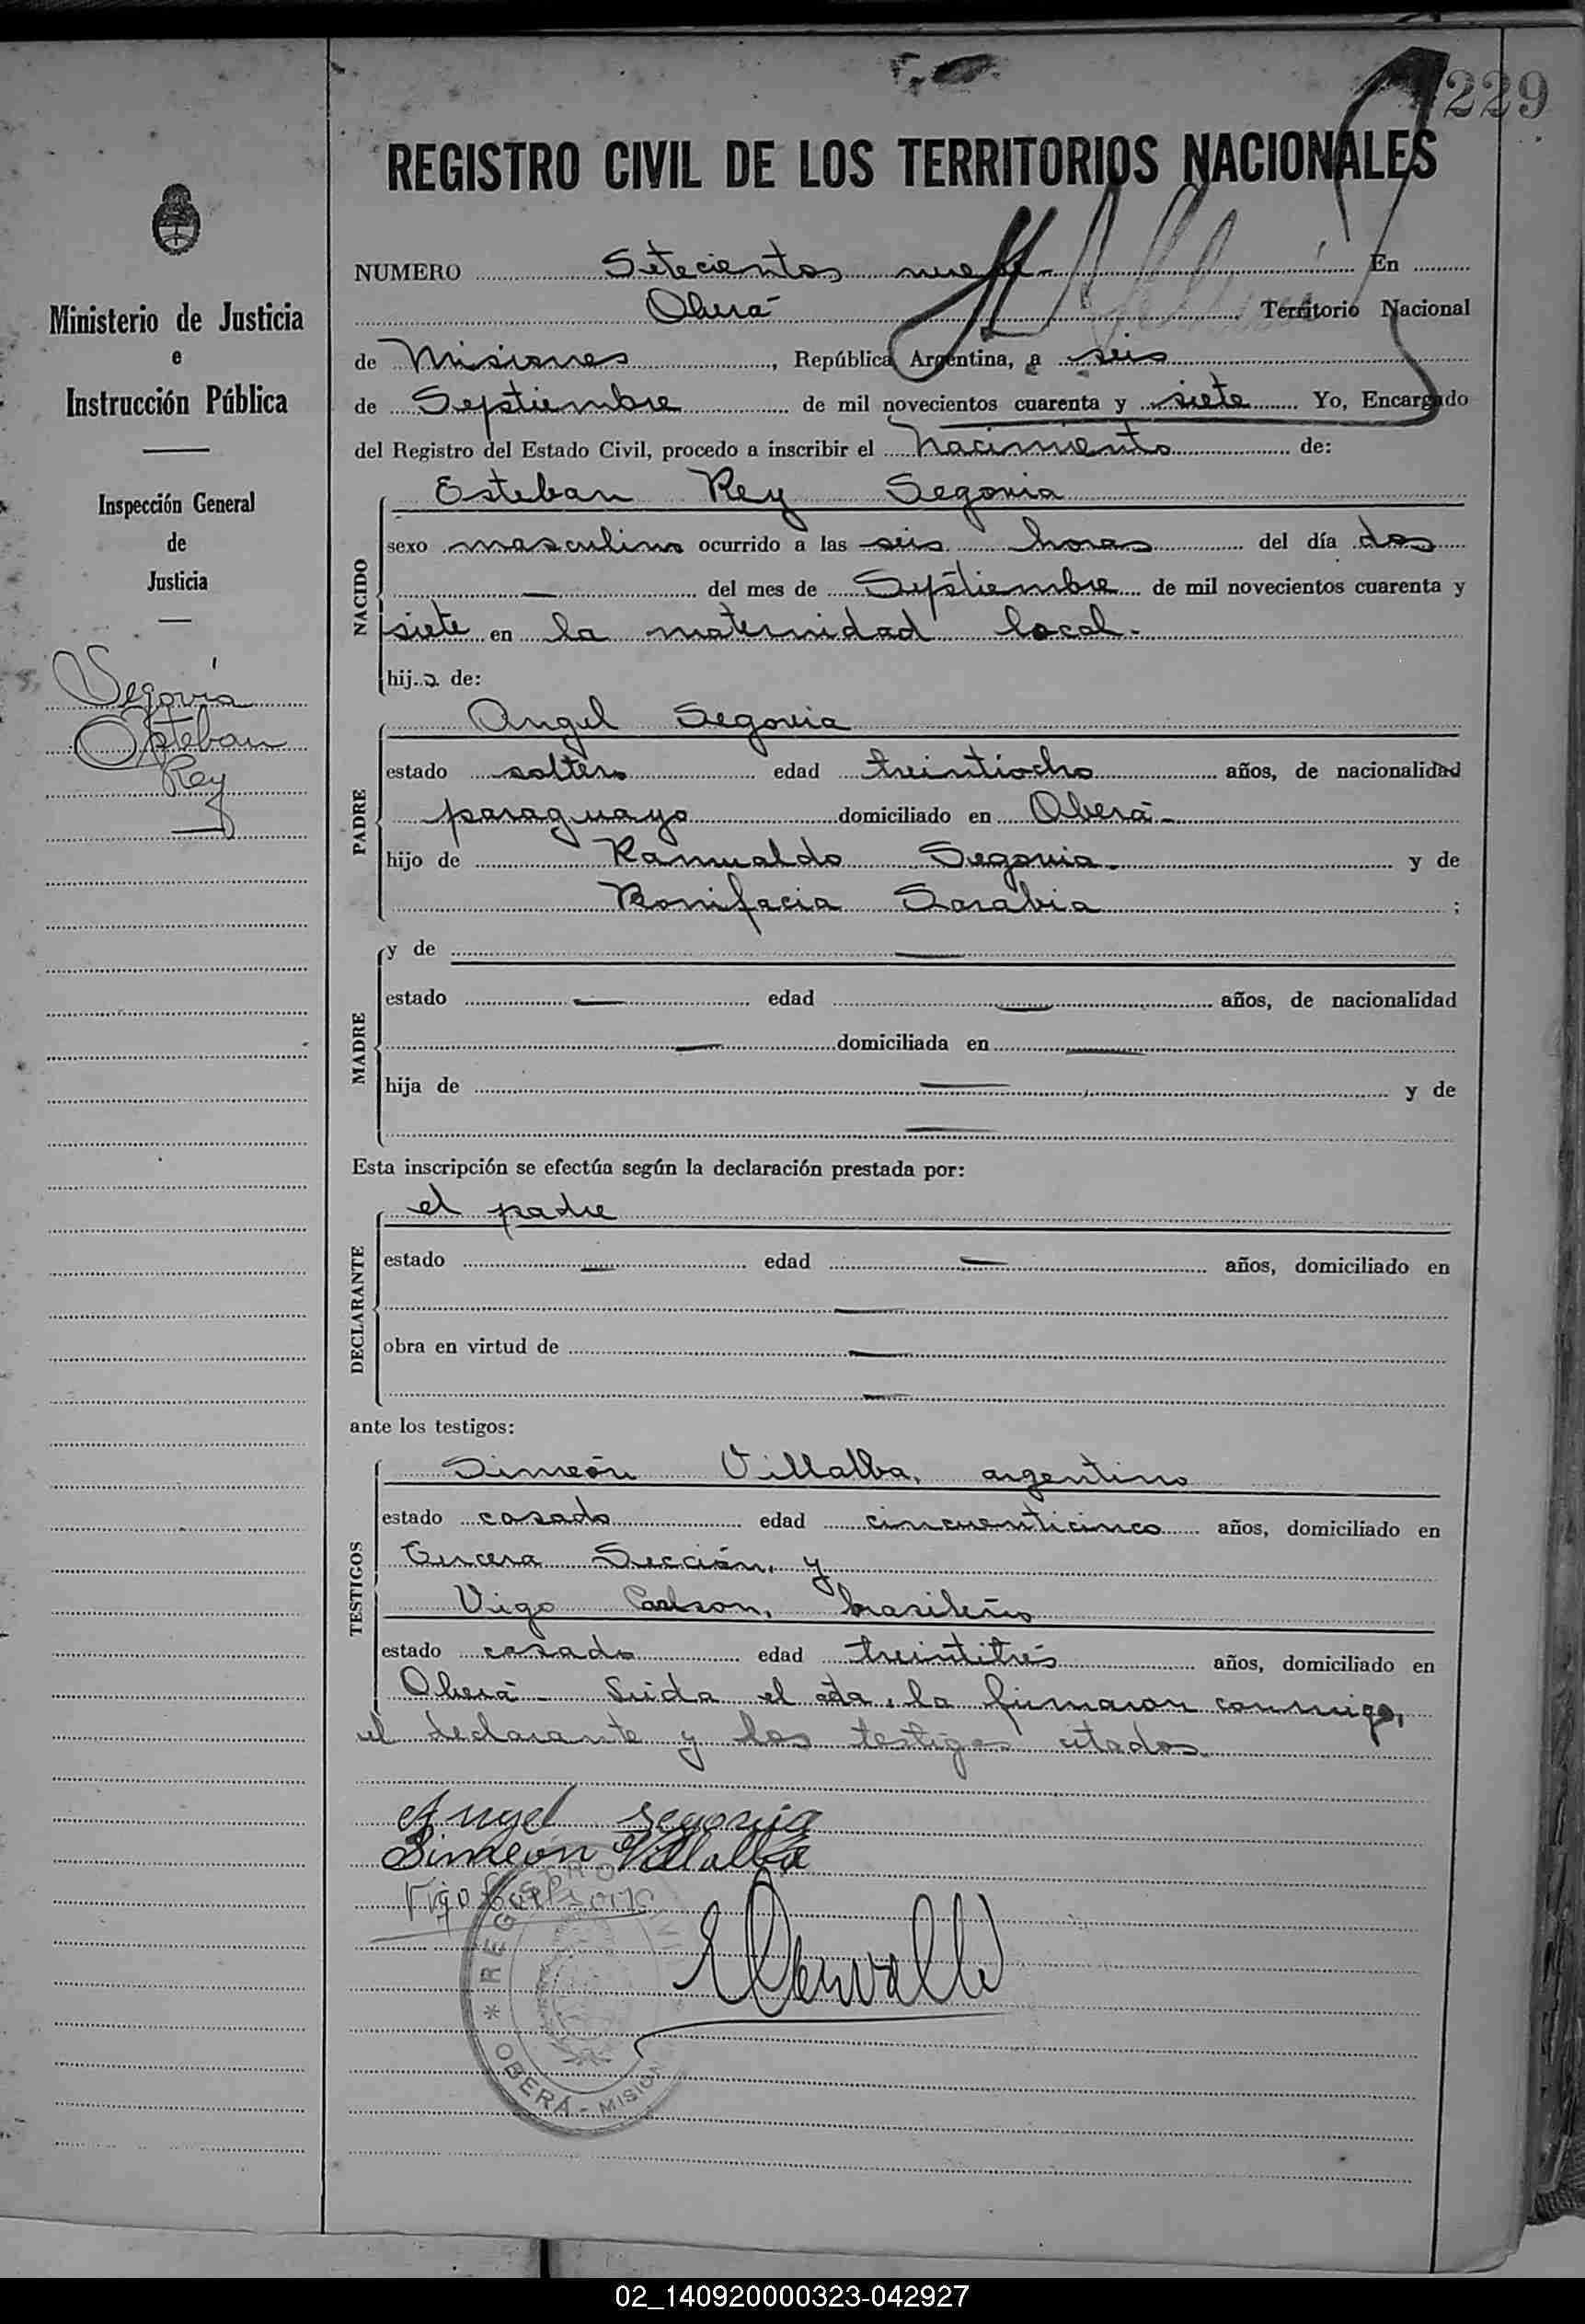 229
REGISTRO CIVIL DE LOS TERRITORIOS NACIONALES
Ministerio de Justicia
e
Instrucción Pública
Inspección General
de
Justicia
Segovia
Esteban
Rey
NUMERO Setecientos nueve En
Oberá Territorio Nacional
de Misiones, República Argentina, a seis
de Septiembre de mil novecientos cuarenta y siete Yo, Encargado
del Registro del Estado Civil, procedo a inscribir el nacimiento de:
NACIDO
Esteban Rey Segovia
sexo masculino ocurrido a las seis horas del día dos
del mes de Septiembre de mil novecientos cuarenta y
siete en la maternidad local.
hijo de:
PADRE
Angel Segovia
estado soltero edad treintiocho años, de nacionalidad
paraguayo domiciliado en Oberá
hijo de Ramualdo Segovia y de
Bonifacia Sarabia ;
MADRE
y de
estado edad años, de nacionalidad
domiciliada en
hija de y de
Esta inscripción se efectúa según la declaración prestada por:
DECLARANTE
el padre
estado edad años, domiciliado en
obra en virtud de
ante los testigos:
TESTIGOS
Simeón Villalba, argentino
estado casado edad cincuenticinco años, domiciliado en
Tercera Sección, y
Vigo Carlson, brasileño
estado casado edad treintitrés años, domiciliado en
Oberá - Leida el acta, la firmaron conmigo,
el declarante y los testigos citados
Angel Segovia
Simeón Villalba
Vigo Carlsong
REGISTRO CIVIL
* OBERÁ - MISION
02_140920000323-042927